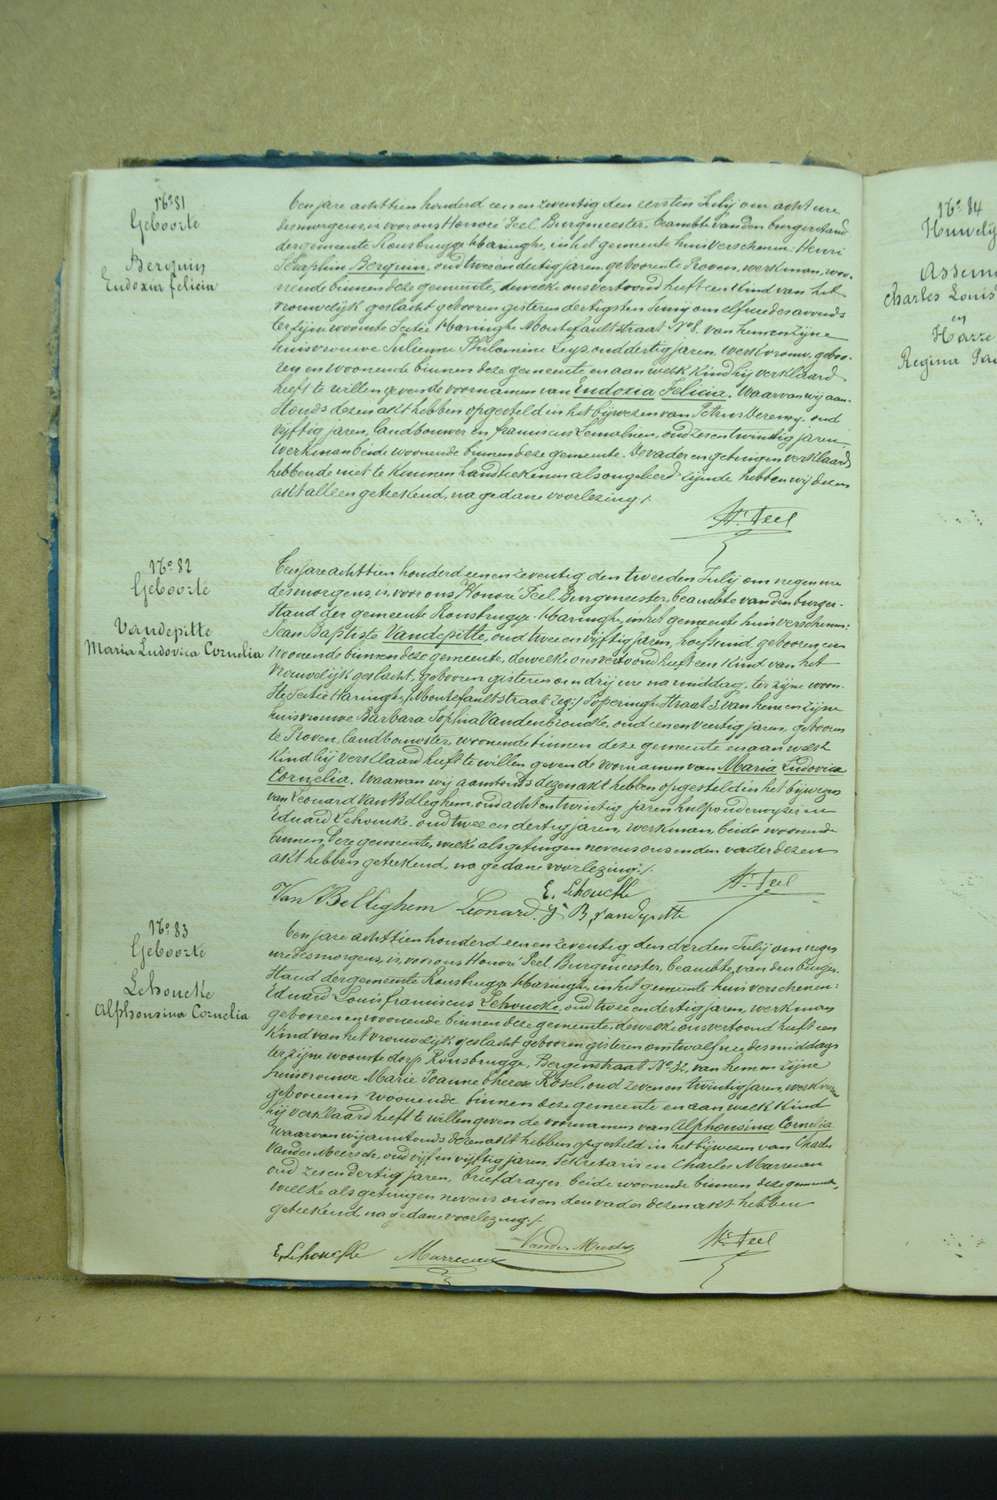 No 81
Geboorte
Berquin
Eudoxia felicia
Een jare achttien honderd een en zeventig den eersten July om acht ure
des morgens, is voor ons Honoré Peel Burgmeester, beambte van den burgerstand
der gemeente Rousbrugge Haringhe, in het gemeente huis verschenen: Henri
Seraphin Berquin, oud twee en dertig jaren, geboren te Proven, werkman, woo-
nende binnen deze gemeente, dewelke ons vertoond heeft een kind van het
vrouwelijk geslacht geboren gisteren dertigsten Juny om elf ure des avonds
ter zijne woonste Sectie Haringhe Montefaultstraat No 8. van hem en zijne
huisvrouwe Julienne Philomine Leys, oud dertig jaren, werkvrouw, gebo-
ren en woonende binnen deze gemeente en aan welk kind hij verklaard
heeft te willen geven de voornamen van Eudoxia Felicia. Waarvan wij aan-
stonds dezen akt hebben opgesteld in het bijwezen van Petrus oud
vijftig jaren, landbouwer en franciscus oud zes en twintig jaren,
werkman beide woonende binnen deze gemeente. De vader en getuigen verklaard
hebbende niet te kunnen handteekenen als ongeleerd zijnde hebben wij dezen
akt alleen geteekend, na gedane voorlezing ./.
Hré Peel
No 82
Geboorte
Vandepitte
Maria Ludovica Cornelia
Een jare achttien honderd een en zeventig den tweeden July om negen ure
des morgens, is voor ons Honoré Peel Burgmeester, beambte van den burger-
stand der gemeente Rousbrugge-Haringhe, in het gemeente huis verschenen:
Jean Baptiste Vandepitte, oud twee en vijftig jaren, hoefsmid, geboren en
woonende binnen deze gemeente, dewelke ons vertoond heeft een kind van het
vrouwelijk geslacht, geboren gisteren om drij ure namiddag, ter zijne woon-
ste Sectie Haringhe, Montefaultstraat zeg: Poperinghstraat 3. van hem en zijne
huisvrouwe Barbara Sophia Vandenbroucke, oud een en veertig jaren, geboren
te Proven, landbouwster, woonende binnen deze gemeente en aan welk
kind hij verklaard heeft te willen geven de voornamen van Maria Ludovica
Cornelia. Waarvan wij aanstonds dezen akt hebben opgesteld in het bijwezen
van Leonard Van Belleghem, oud acht en twintig jaren hulponderwijzer en
Eduard Lehoucke, oud twee en dertig jaren, werkman, beide woonende
binnen deze gemeente, welke als getuigen nevens ons en den vader dezen
akt hebben geteekend, na gedane voorlezing ./.
E. Lehoucke Hré Peel
Van Belleghem Leonard. J B, vandepitte
No 83
Geboorte
Lehoucke
Alphonsina Cornelia
Een jare achttien honderd een en zeventig den derden July om negen
ure des morgens, is voor ons Honoré Peel, Burgmeester, beambte van den burger-
stand der gemeente Rousbrugge Haringhe, in het gemeente huis verschenen:
Eduard Louis franciscus Lehoucke, oud twee en dertig jaren, werkman
geboren en woonende binnen deze gemeente, dewelke ons vertoond heeft een
kind van het vrouwelijk geslacht geboren gisteren om twalf ure des middags
ter zijne woonste dorp Rousbrugge, Bergenstraat No 32, van hem en zijne
huisvrouwe Marie Joanne Therese Rosel, oud zeven en twintig jaren, werkvrouw
geboren en woonende binnen deze gemeente en aan welk kind
hij verklaard heeft te willen geven de voornamen van Alphonsina Cornelia
Waarvan wij aanstonds dezen akt hebben opgesteld in het bijwezen van Charles
Vander Meersch, oud vijf en vijftig jaren, Sekretaris en Charles Marreeuw
oud zes en dertig jaren, briefdrager beide woonende binnen deze gemeente,
welke als getuigen nevens ons en den vader dezen akt hebben
geteekend na gedane voorlezing ./.
E, Lehoucke Marreeuw Vander Meersch Hré Peel
No 84
Huwelij
Assem
Charles Louis
en
Hazze
Regina